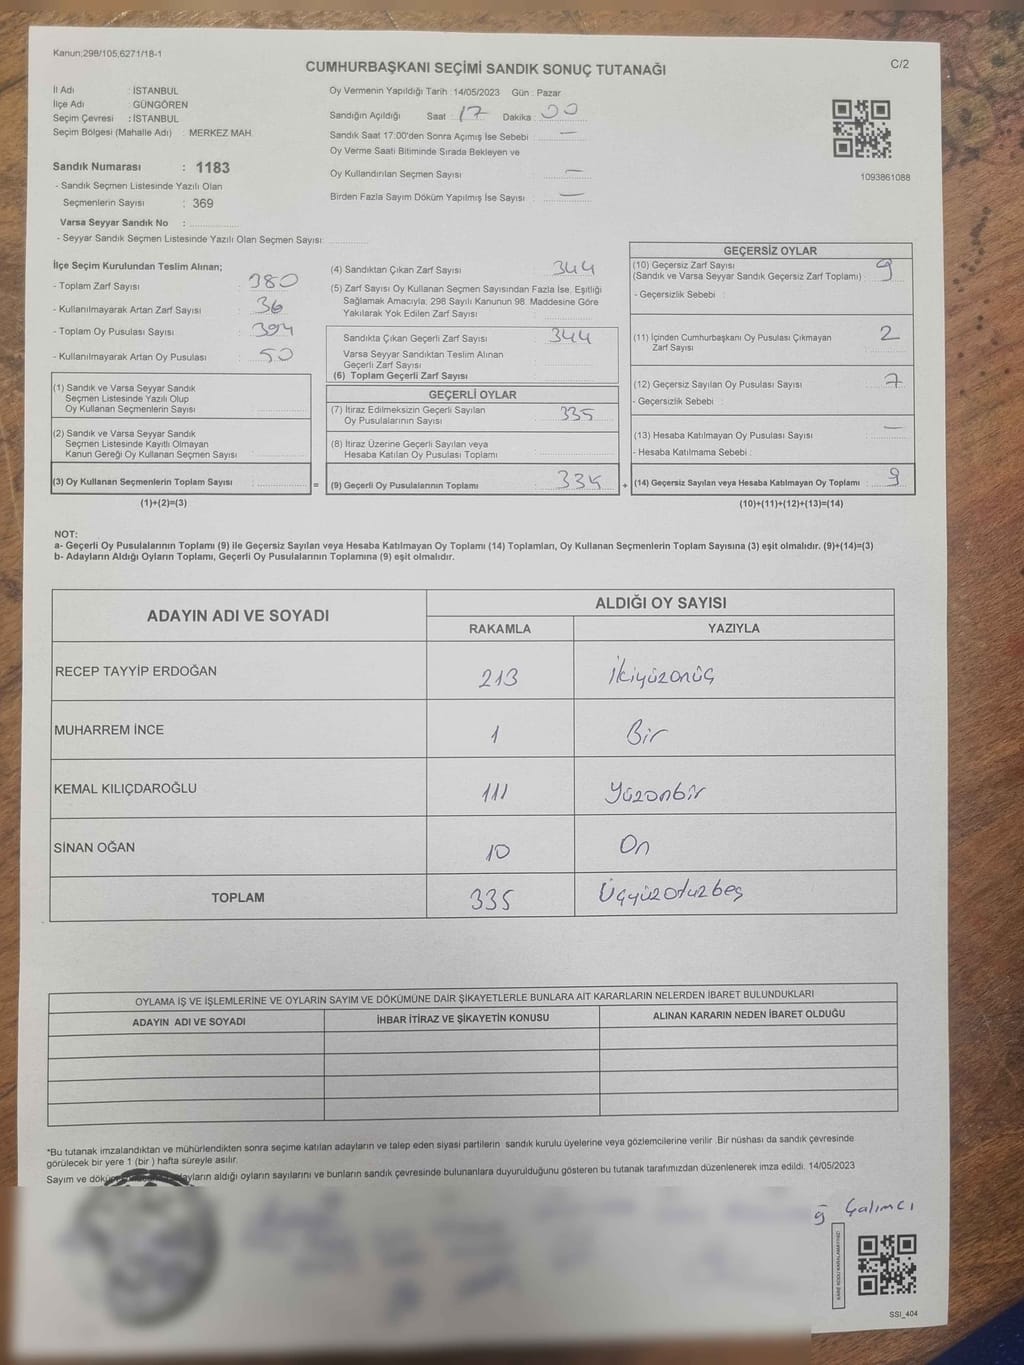 Kanun;298/105,6271/18-1
C/2
CUMHURBAŞKANI SEÇİMİ SANDIK SONUÇ TUTANAĞI
İl Adı : İSTANBUL
İlçe Adı : GÜNGÖREN
Seçim Çevresi : İSTANBUL
Seçim Bölgesi (Mahalle Adı) : MERKEZ MAH.
Sandık Numarası : 1183
- Sandık Seçmen Listesinde Yazılı Olan
Seçmenlerin Sayısı : 369
Varsa Seyyar Sandık No :
- Seyyar Sandık Seçmen Listesinde Yazılı Olan Seçmen Sayısı:
Oy Vermenin Yapıldığı Tarih : 14/05/2023 Gün : Pazar
Sandığın Açıldığı Saat : 17 Dakika : 00
Sandık Saat 17:00'den Sonra Açımış İse Sebebi : —
Oy Verme Saati Bitiminde Sırada Bekleyen ve
Oy Kullandırılan Seçmen Sayısı : —
Birden Fazla Sayım Döküm Yapılmış İse Sayısı : —
1093861088
İlçe Seçim Kurulundan Teslim Alınan;
- Toplam Zarf Sayısı : 380
- Kullanılmayarak Artan Zarf Sayısı : 36
- Toplam Oy Pusulası Sayısı : 394
- Kullanılmayarak Artan Oy Pusulası : 50
(1) Sandık ve Varsa Seyyar Sandık
Seçmen Listesinde Yazılı Olup
Oy Kullanan Seçmenlerin Sayısı :
(2) Sandık ve Varsa Seyyar Sandık
Seçmen Listesinde Kayıtlı Olmayan
Kanun Gereği Oy Kullanan Seçmen Sayısı :
(3) Oy Kullanan Seçmenlerin Toplam Sayısı : =
(1)+(2)=(3)
(4) Sandıktan Çıkan Zarf Sayısı : 344
(5) Zarf Sayısı Oy Kullanan Seçmen Sayısından Fazla İse, Eşitliği
Sağlamak Amacıyla, 298 Sayılı Kanunun 98. Maddesine Göre
Yakılarak Yok Edilen Zarf Sayısı :
Sandıkta Çıkan Geçerli Zarf Sayısı : 344
Varsa Seyyar Sandıktan Teslim Alınan
Geçerli Zarf Sayısı :
(6) Toplam Geçerli Zarf Sayısı :
GEÇERLİ OYLAR
(7) İtiraz Edilmeksizin Geçerli Sayılan
Oy Pusulalarının Sayısı : 335
(8) İtiraz Üzerine Geçerli Sayılan veya
Hesaba Katılan Oy Pusulası Toplamı :
(9) Geçerli Oy Pusulalarının Toplamı : 335 +
GEÇERSİZ OYLAR
(10) Geçersiz Zarf Sayısı
(Sandık ve Varsa Seyyar Sandık Geçersiz Zarf Toplamı) : 9
- Geçersizlik Sebebi :
(11) İçinden Cumhurbaşkanı Oy Pusulası Çıkmayan
Zarf Sayısı : 2
(12) Geçersiz Sayılan Oy Pusulası Sayısı : 7
- Geçersizlik Sebebi :
(13) Hesaba Katılmayan Oy Pusulası Sayısı : —
- Hesaba Katılmama Sebebi :
(14) Geçersiz Sayılan veya Hesaba Katılmayan Oy Toplamı : 9
(10)+(11)+(12)+(13)=(14)
NOT:
a- Geçerli Oy Pusulalarının Toplamı (9) ile Geçersiz Sayılan veya Hesaba Katılmayan Oy Toplamı (14) Toplamları, Oy Kullanan Seçmenlerin Toplam Sayısına (3) eşit olmalıdır. (9)+(14)=(3)
b- Adayların Aldığı Oyların Toplamı, Geçerli Oy Pusulalarının Toplamına (9) eşit olmalıdır.
ADAYIN ADI VE SOYADI
ALDIĞI OY SAYISI
RAKAMLA YAZIYLA
RECEP TAYYİP ERDOĞAN 213 İkiyüzonüç
MUHARREM İNCE 1 Bir
KEMAL KILIÇDAROĞLU 111 Yüzonbir
SİNAN OĞAN 10 On
TOPLAM 335 Üçyüzotuzbeş
OYLAMA İŞ VE İŞLEMLERİNE VE OYLARIN SAYIM VE DÖKÜMÜNE DAİR ŞİKAYETLERLE BUNLARA AİT KARARLARIN NELERDEN İBARET BULUNDUKLARI
ADAYIN ADI VE SOYADI İHBAR İTİRAZ VE ŞİKAYETİN KONUSU ALINAN KARARIN NEDEN İBARET OLDUĞU
*Bu tutanak imzalandıktan ve mühürlendikten sonra seçime katılan adayların ve talep eden siyasi partilerin sandık kurulu üyelerine veya gözlemcilerine verilir. Bir nüshası da sandık çevresinde
görülecek bir yere 1 (bir) hafta süreyle asılır.
Sayım ve döküm adayların aldığı oyların sayılarını ve bunların sandık çevresinde bulunanlara duyurulduğunu gösteren bu tutanak tarafımızdan düzenlenerek imza edildi. 14/05/2023
Çalımcı
KARE KODU KARALAMAYINIZ!
SSİ_404